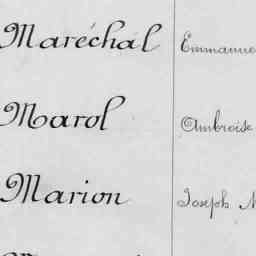 Maréchal Emmanue
Marol Ambroise
Marion Joseph